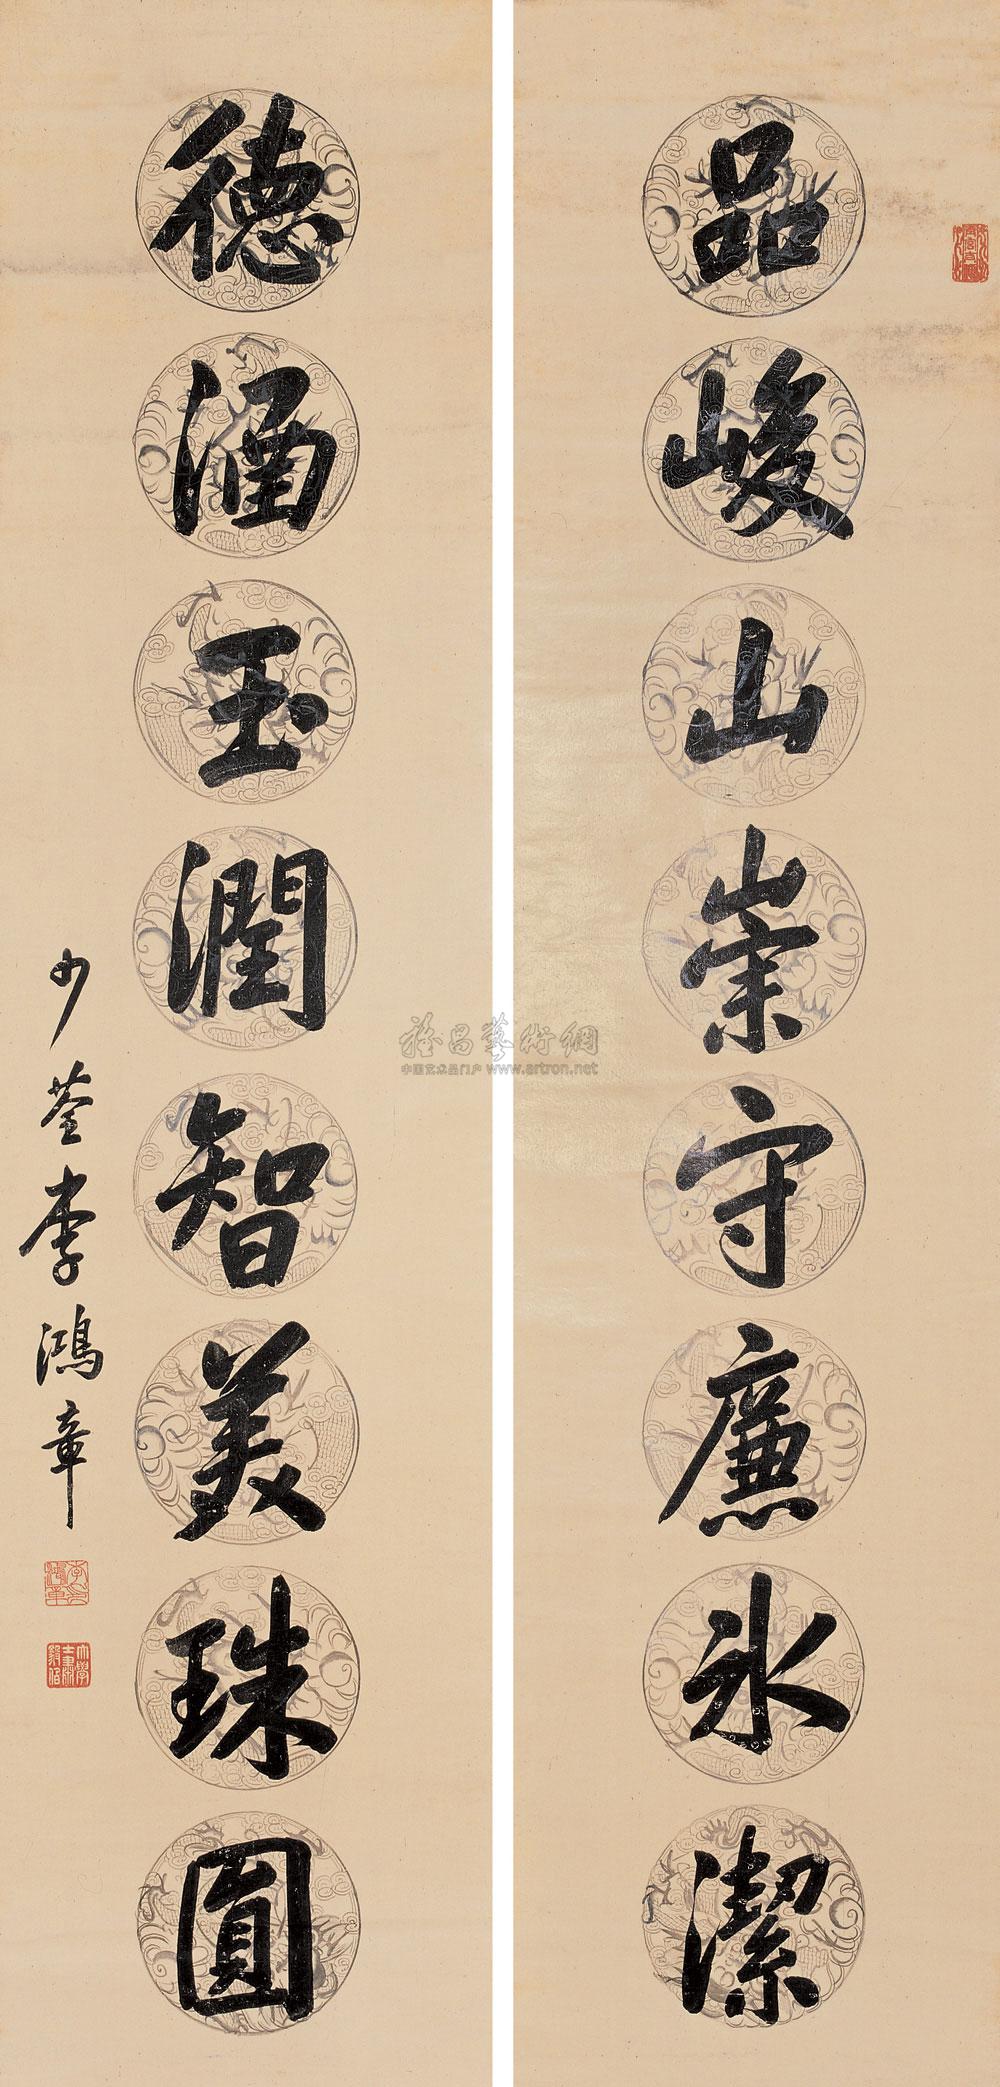 品峻山崇守廉冰潔
德涵玉潤智美珠圓
少荃李鴻章
雅昌藝術網
中国艺术品门户 www.artron.net